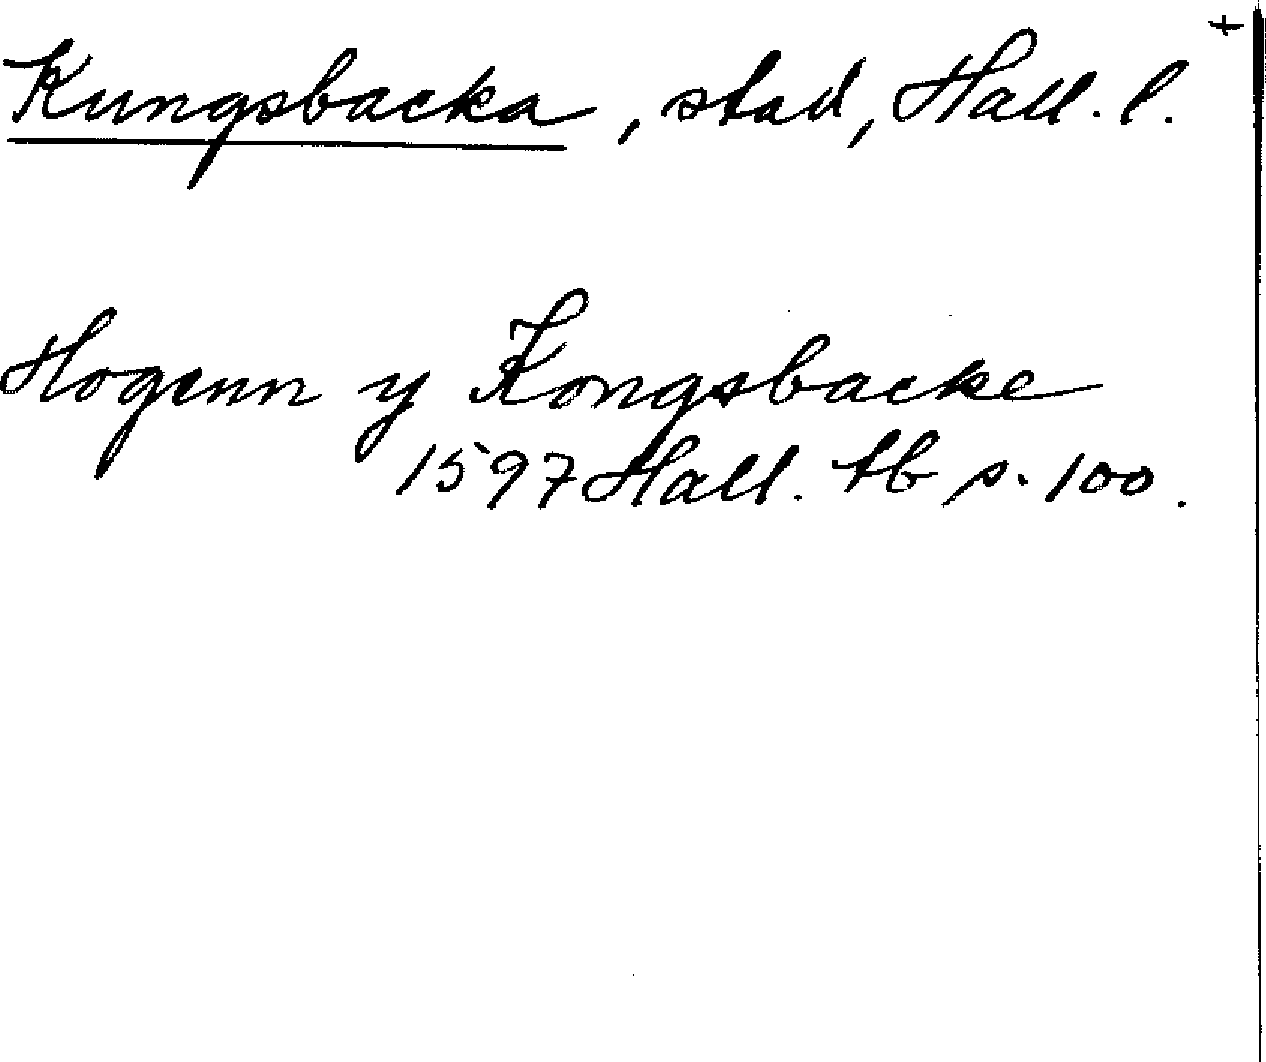 Kungsbacka, stad, Hall. l. +
Hogenn y Kongsbacke
1597 Hall. tb s. 100.